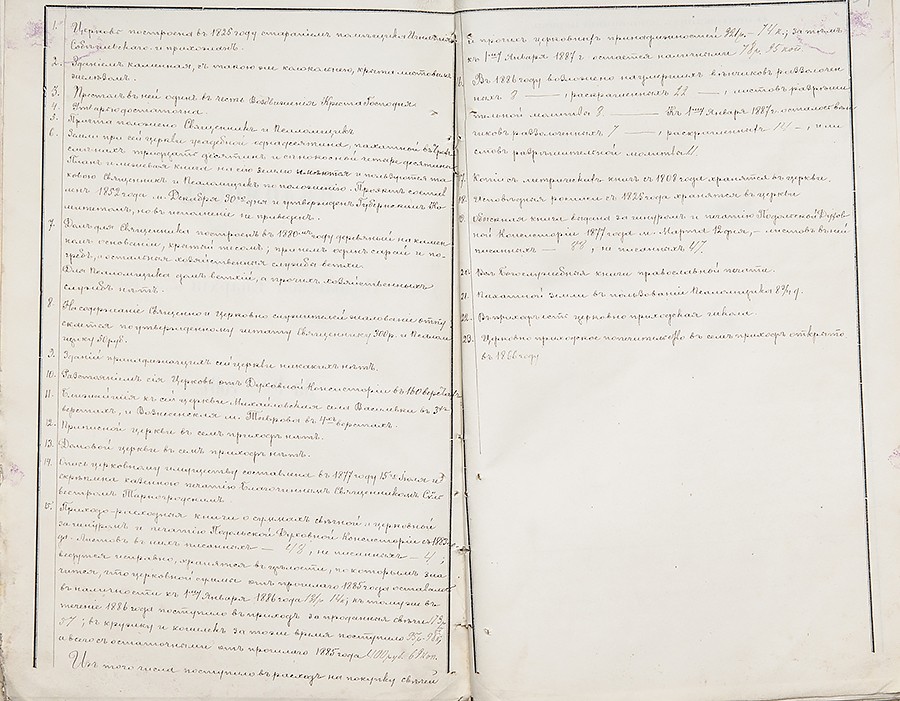 1. Церковь построена въ 1825 году стараніемъ помѣщика Игнатія
Собѣщанскаго и прихожанъ.
2. Зданіемъ каменная, съ таковою же колокольнею, крыта листовымъ
желѣзомъ.
3. Престолъ въ ней одинъ въ честь Воздвиженія Креста Господня
4. Утварью достаточна.
5. Причта положено Священникъ и Псаломщикъ
6. Земли при сей церкви усадебной одна десятина, пахатной въ трехъ
смѣнахъ тридцать десятинъ и сѣнокосной четыре десятины
Планъ и межевая книга на сію землю имѣются и пользуется та-
ковою священникъ и Псаломщикъ по положенію. Проэктъ составленъ
1852 года м. Декабря 30го дня и утвержденъ Губернскимъ Ко-
митетомъ, но въ исполненіе не приведенъ.
7. Домъ для Священника построенъ въ 1880 году деревянный на камен-
номъ основаніи, крытый тесомъ; при немъ одинъ сарай и по-
гребъ, остальныя хозяйственныя службы ветхи.
Для Псаломщика домъ ветхій, а прочихъ хозяйственныхъ
службъ нѣтъ.
8. На содержаніе Священно и Церковно служителей жалованье отпу-
скается по утвержденному штату Священнику 300 р. и Псалом-
щику 50 руб.
9. Зданій принадлежащихъ сей церкви никакихъ нѣтъ.
10. Разстояніемъ сія Церковь отъ Духовной Консисторіи въ 160 верстахъ
11. Ближайшія къ сей церкви Михайловская села Васильевки въ 3хъ
верстахъ, и Вознесенская м. въ 4хъ верстахъ.
12. Приписной церкви въ семъ приходѣ нѣтъ.
13. Домовой церкви въ семъ приходѣ нѣтъ.
14. Опись церковному имуществу составлена въ 1877 году 15 д. Іюля и
скрѣплена казенною печатію Благочиннымъ Священникомъ
Тарногродскимъ.
15. Приходо-расходныя книги о суммахъ свѣчной и церковной
за шнуромъ и печатію Подольской Духовной Консисторіи съ 1883
Листовъ въ нихъ писанныхъ — 48, не писанныхъ — 4,
ведутся исправно, хранятся въ цѣлости, по которымъ зна-
чится, что церковной суммы отъ прошлаго 1885 года оставалось
въ наличности къ 1му Января 1886 года къ тому же въ
теченіе 1886 года поступило въ приходъ за проданныя свѣчи
въ кружку и кошелекъ за тоже время поступило
а всего съ остаточными отъ прошлаго 1885 года
Изъ того числа поступило въ расходъ на покупку свѣчей
и прочихъ церковныхъ принадлежностей 321 р. 74 к.; за тѣмъ
къ 1му Января 1887 г. остается наличными 78 р. 95 коп.
16. Въ 1886 году возложено на умершихъ вѣнчиковъ раззолочен-
ныхъ 8 —, раскрашенныхъ 28 —, листовъ разрѣши-
тельной молитвы 8 — Къ 1му Января 1887 г. осталось вѣн-
чиковъ раззолоченныхъ 7 —, раскрашенныхъ 14 —, и ли-
стовъ разрѣшительной молитвы 11.
17. Копіи съ метрическихъ книгъ съ 1808 года хранятся въ церкви.
18. Исповѣдныя росписи съ 1825 года хранятся въ церкви
19. Обыскная книга выдана за шнуромъ и печатію Подольской Духов-
ной Консисторіи 1877 года м. Марта 12 дня, — листовъ въ ней
писанныхъ — 88, не писанныхъ 47.
20. Всѣ Богослужебныя книги православной печати.
21. Пахатной земли въ пользованіи Псаломщика 8¼ д.
22. Въ приходѣ есть церковно приходская школа.
23. Церковно приходское попечительство въ семъ приходѣ открыто
въ 1866 году